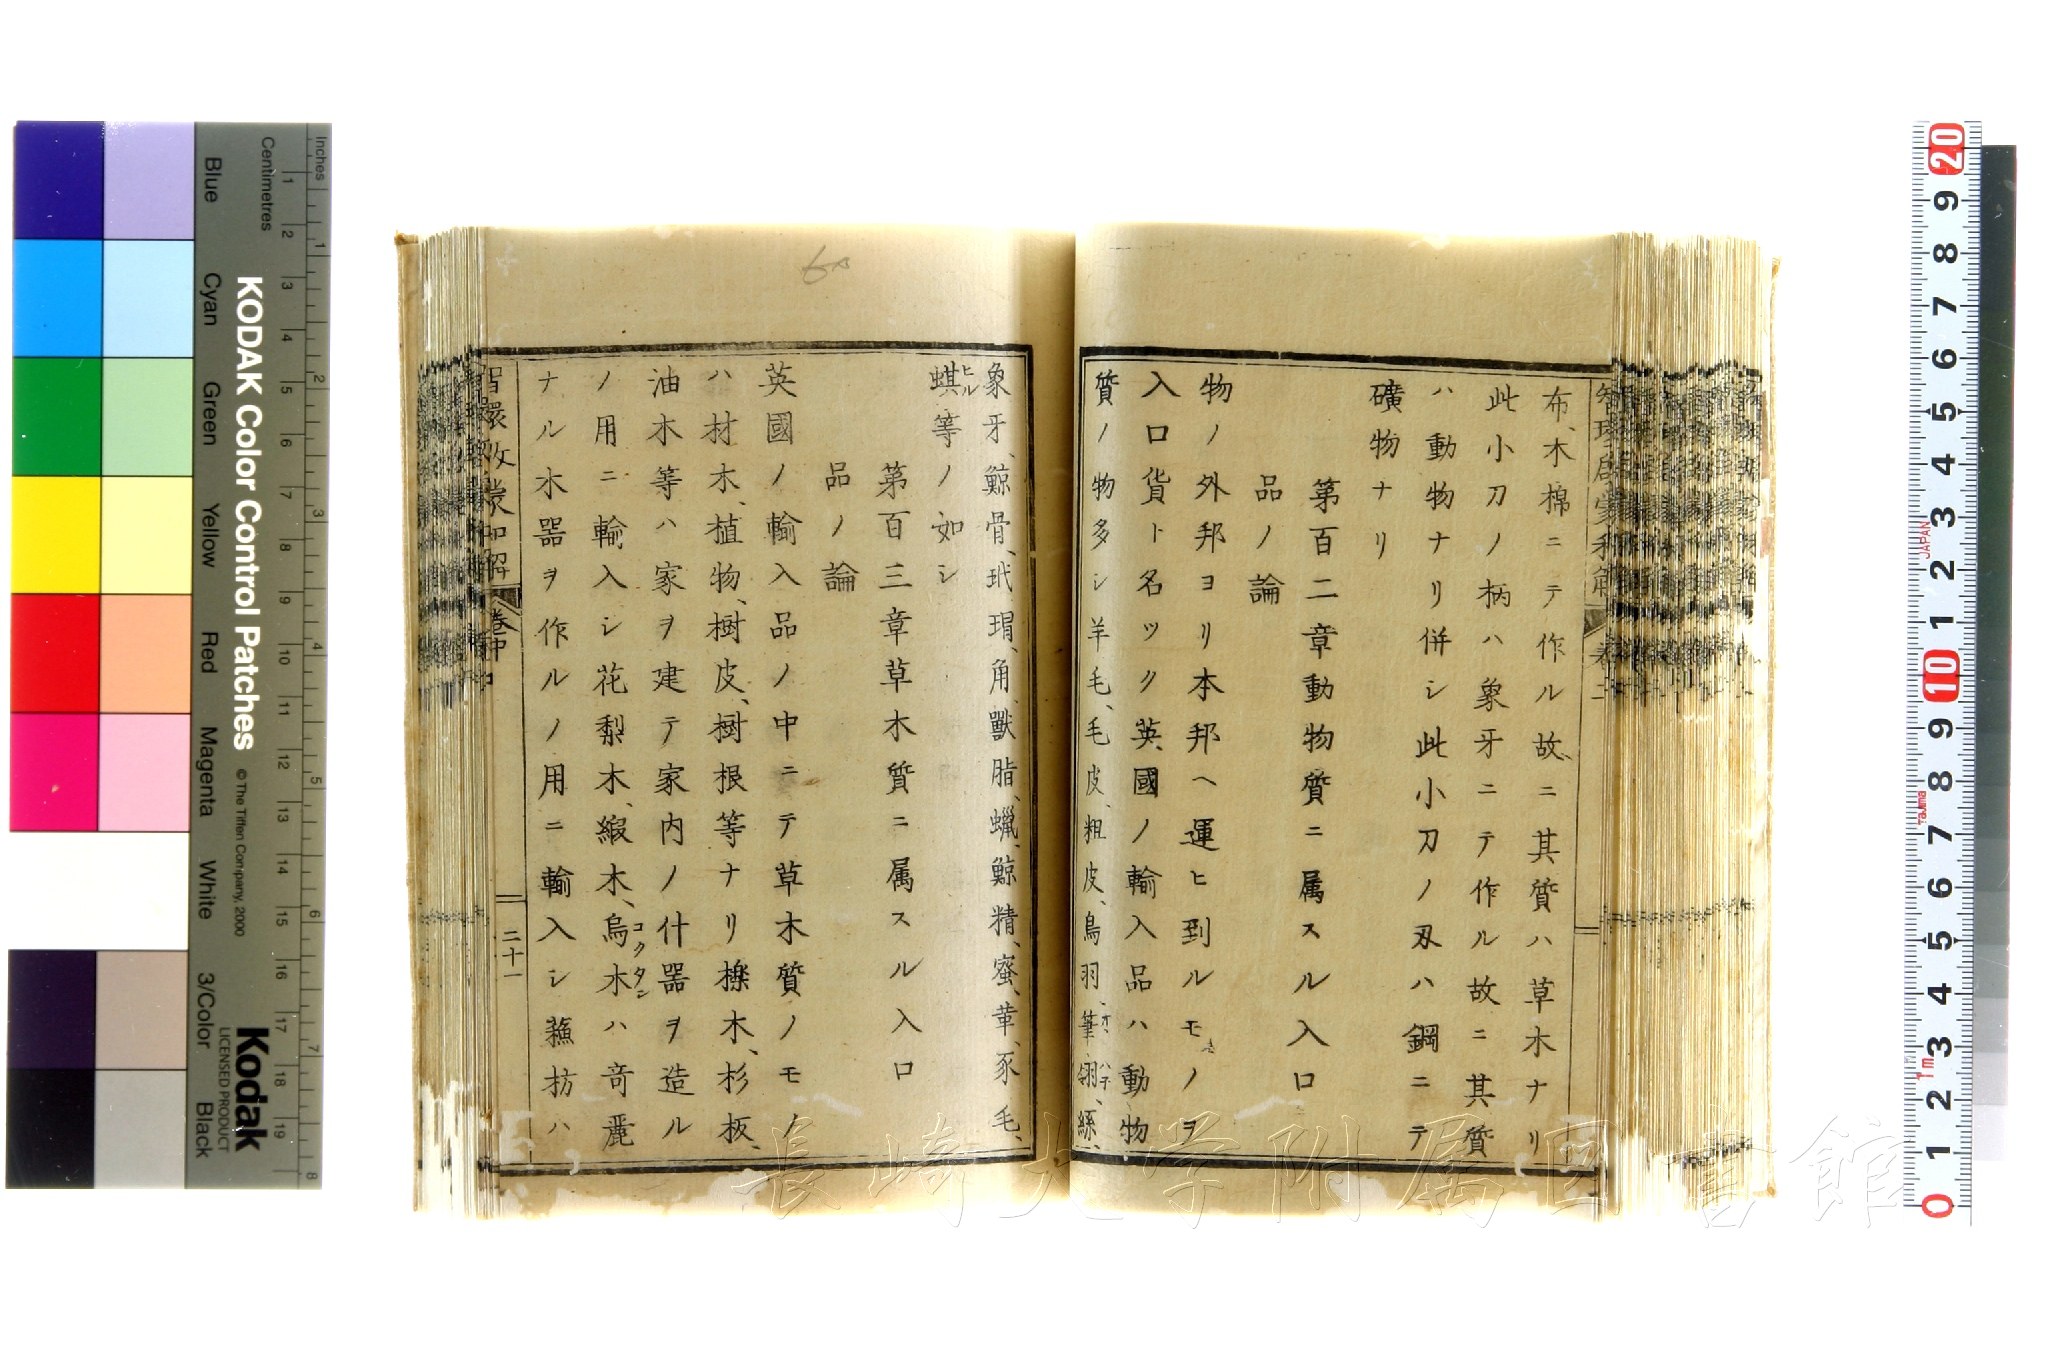 布、木棉ニテ作ル故ニ其質ハ草木ナリ
此小刀ノ柄ハ象牙ニテ作ル故ニ其質
ハ動物ナリ併シ此小刀ノ刄ハ鋼ニテ
礦物ナリ
第百二章動物質ニ属スル入口
品ノ論
物ノ外邦ヨリ本邦ヘ運ヒ到ルモノヲ
入口貨ト名ツク英國ノ輸入品ハ動物
質ノ物多シ羊毛、毛皮、粗皮、鳥羽、筆翎、絲、
象牙、鯨骨、玳瑁、角、獸脂、蠟、鯨精、蜜、革、豕毛、
蜞等ノ如シ
ヒル
第百三章草木質ニ属スル入口
品ノ論
英國ノ輸入品ノ中ニテ草木質ノモノ
ハ材木、植物、樹皮、樹根等ナリ橡木、杉板、
油木等ハ家ヲ建テ家内ノ什器ヲ造ル
ノ用ニ輸入シ花梨木、緞木、烏木ハ奇麗
コクタン
ナル木器ヲ作ルノ用ニ輸入シ蘓枋ハ
智環啓蒙和解
卷中
二十一
6
長崎大学附属図書館
KODAK Color Control Patches
© The Tiffen Company, 2000
Kodak
LICENSED PRODUCT
Inches
Centimetres
Blue
Cyan
Green
Yellow
Red
Magenta
White
3/Color
Black
1 2 3 4 5 6 7 8 9 10 11 12 13 14 15 16 17 18 19
1 2 3 4 5 6 7 8
20 9 8 7 6 5 4 3 2 1 10 9 8 7 6 5 4 3 2 1 0
JAPAN
Tajima
1m